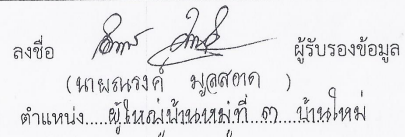 ลงชื่อ ผู้รับรองข้อมูล
(นายณรงค์ มูลสอาด)
ตำแหน่ง.....ผู้ใหญ่บ้านหมู่ที่ ๓...บ้านใหม่